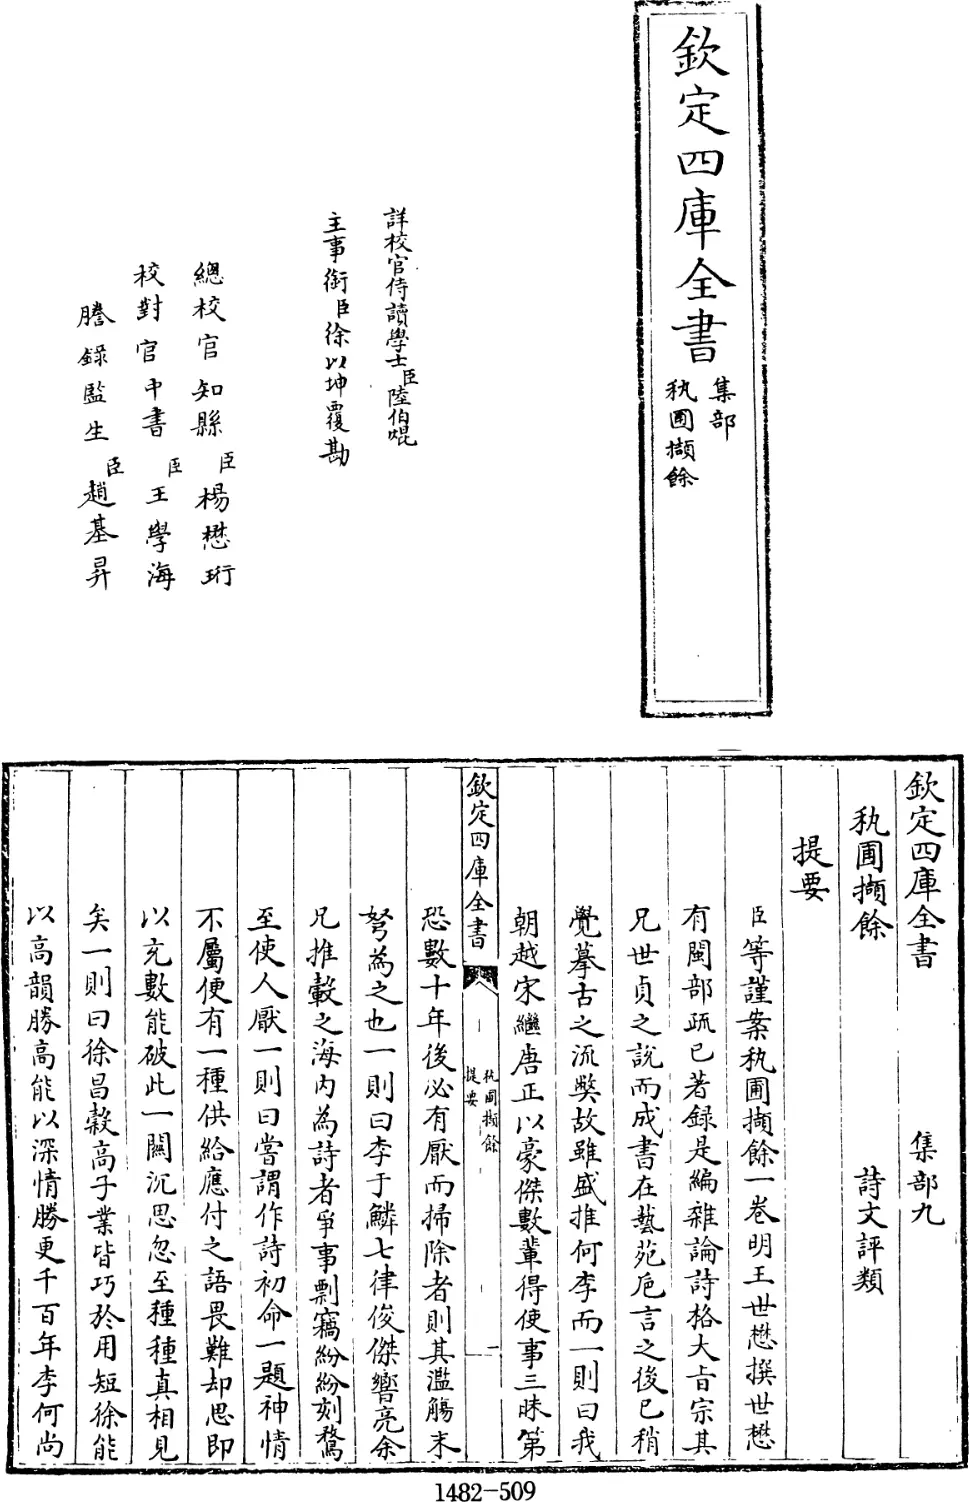 欽定四庫全書
集部
秇圃擷餘
詳校官侍讀學士臣陸伯焜
主事銜臣徐以坤覆勘
總校官知縣臣楊懋珩
校對官中書臣王學海
謄錄監生臣趙基昇
欽定四庫全書 集部九
秇圃擷餘 詩文評類
提要
臣等謹案秇圃擷餘一巻明王世懋撰世懋
有閩部疏已著録是編雜論詩格大旨宗其
兄世貞之說而成書在藝苑卮言之後已稍
覺摹古之流獘故雖盛推何李而一則曰我
朝越宋繼唐正以豪傑數輩得使事三昧第
欽定四庫全書
秇圃擷餘
提要
一
恐數十年後必有厭而掃除者則其濫觴末
弩為之也一則曰李于鱗七律俊傑響亮余
兄推轂之海内為詩者爭事剽竊紛紛刻鶩
至使人厭一則曰嘗謂作詩初命一題神情
不屬便有一種供給應付之語畏難却思即
以充數能破此一闗沉思忽至種種真相見
矣一則曰徐昌榖高子業皆巧於用短徐能
以高韻勝高能以深情勝更千百年李何尚
1482-509